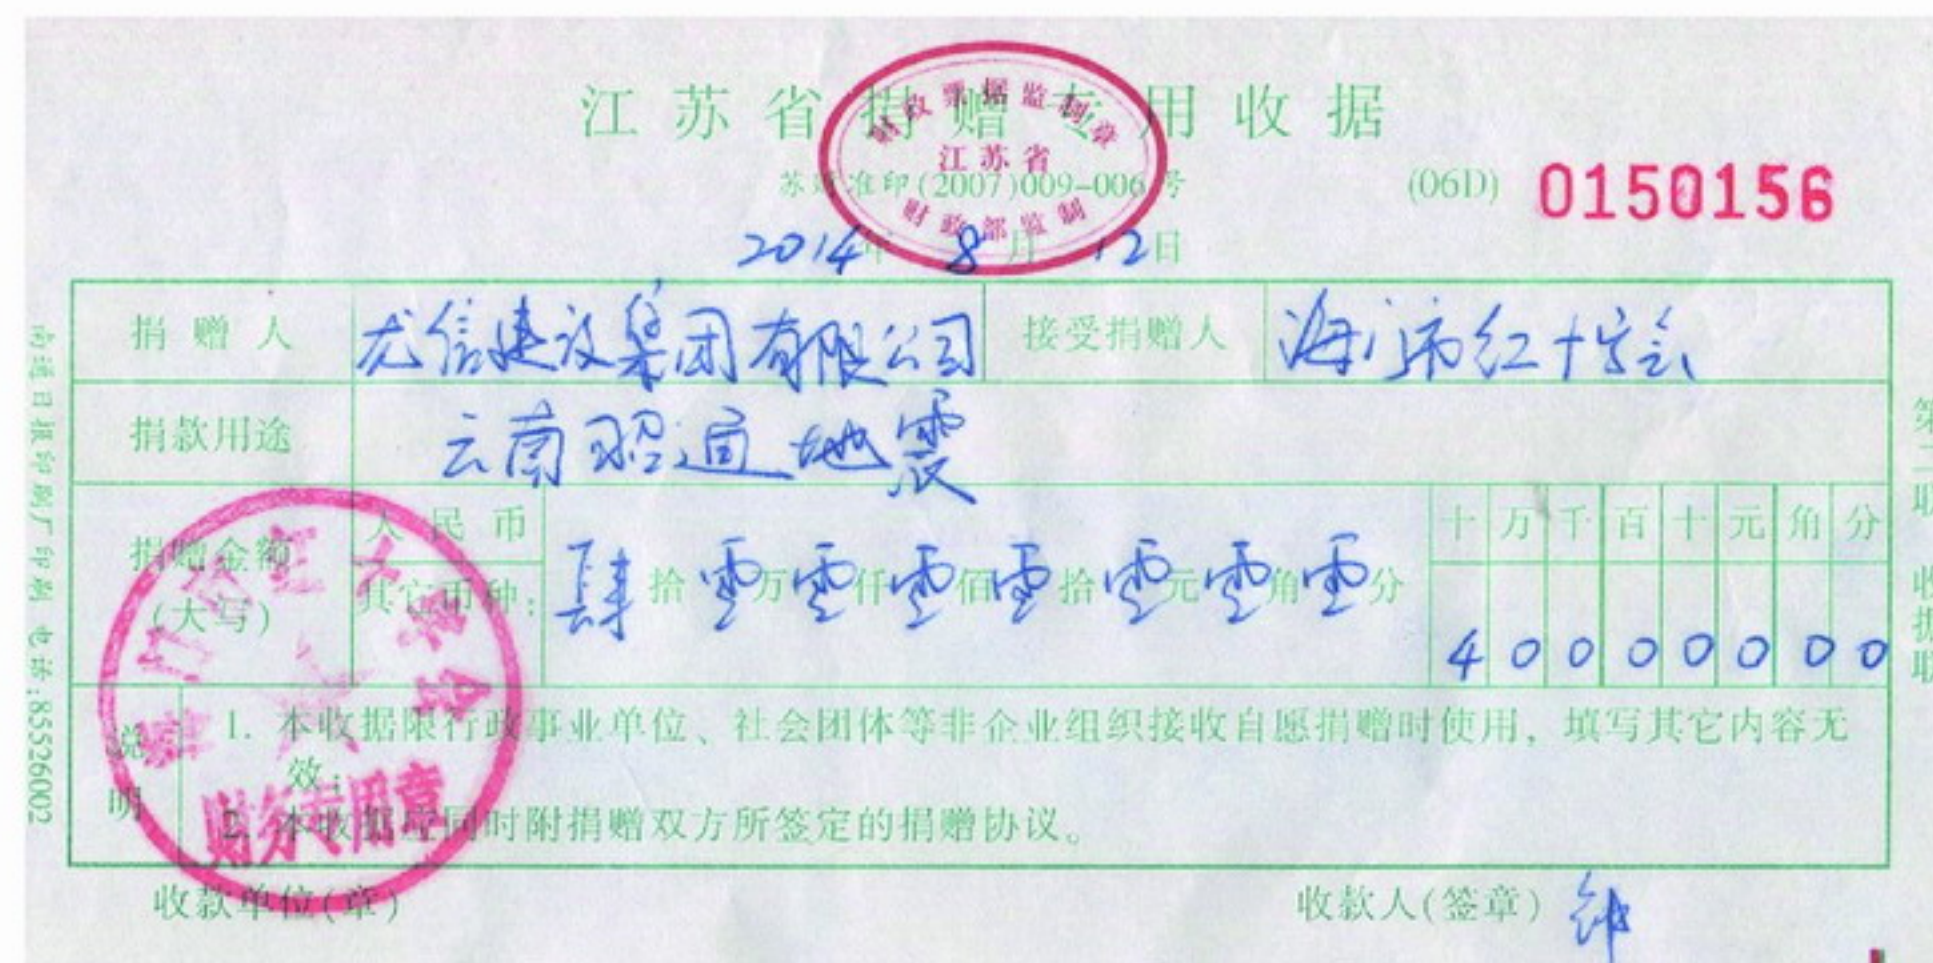 江苏省捐赠专用收据
财政票据监制章
江苏省
财政部监制
准印(2007)009-006号
(06D) 0150156
2014年8月12日
捐赠人 龙信建设集团有限公司 接受捐赠人 海门市红十字会
捐款用途 云南昭通地震
捐赠金额(大写) 人民币 其它币种: 肆拾零万零仟零佰零拾零元零角零分
十万千百十元角分
40000000
说明
1. 本收据限行政事业单位、社会团体等非企业组织接收自愿捐赠时使用，填写其它内容无
效；
2. 本收据应同时附捐赠双方所签定的捐赠协议。
财务专用章
收款单位(章) 收款人(签章)
南通日报印刷厂印刷 电话:85526002
第二联 收据联